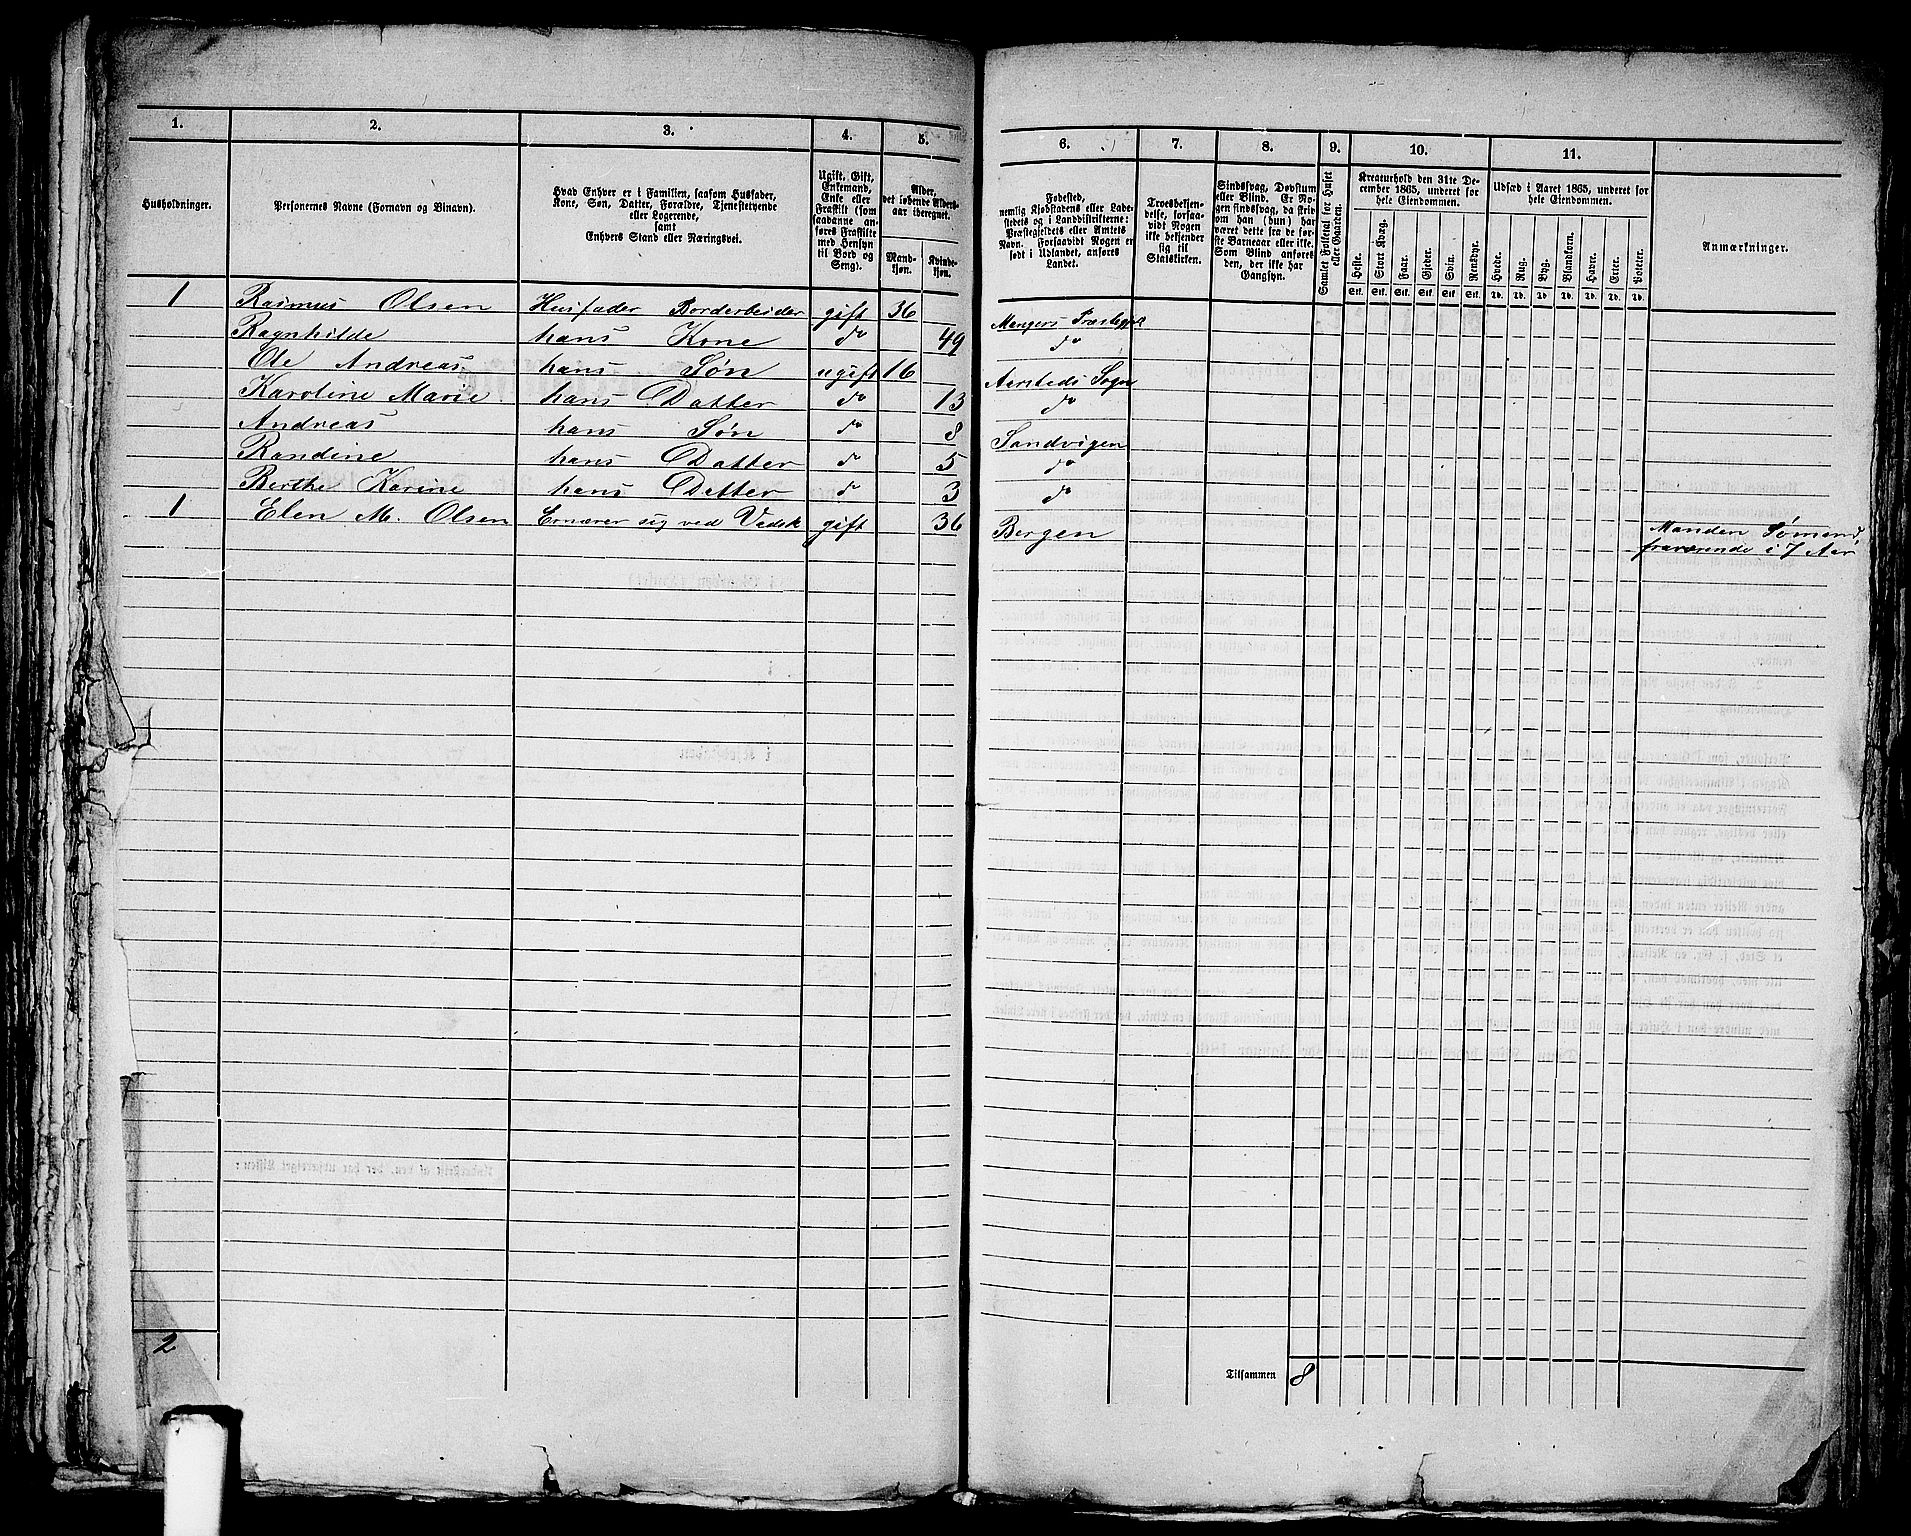 1. 2. 3. 4. 5. 6. 7. 8. 9. 10. 11.
Husholdninger.
Personernes Navne (Fornavn og Binavn).
Hvad Enhver er i Familien, saasom Husfader,
Kone, Søn, Datter, Forældre, Tjenestetyende
eller Logerende,
samt
Enhvers Stand eller Næringsvei.
Ugift, Gift,
Enkemand,
Enke eller
Fraskilt (som
saadanne an-
føres Fraskilte
med Hensyn
til Bord og
Seng).
Alder,
det løbende Alders-
aar iberegnet.
Mand-
kjøn.
Kvinde-
kjøn.
Fødested,
nemlig Kjøbstadens eller Lade-
stedets og i Landdistrikterne:
Præstegjeldets eller Amtets
Navn. Forsaavidt Nogen er
født i Udlandet, anføres
Landet.
Troesbekjen-
delse, forsaa-
vidt Nogen
ikke bekjender
sig til
Statskirken.
Sindssvag, Døvstum
eller Blind. Er No-
gen sindssvag, da skriv
om han (hun) har
været dette fra de før-
ste Barneaar eller ikke.
Som Blind anføres
den, der ikke har
Gangsyn.
Samlet Folketal for Huset
eller Gaarden.
Kreaturhold den 31te De-
cember 1865, underet for
hele Eiendommen.
Heste. Stort Kvæg. Faar. Gjeder. Svin. Rensdyr.
Stk. Stk. Stk. Stk. Stk. Stk.
Udsæd i Aaret 1865, underet for
hele Eiendommen.
Hvede. Rug. Byg. Blandkorn. Havre. Erter. Poteter.
Td. Td. Td. Td. Td. Td. Td.
Anmærkninger.
1 Rasmus Olsen Husfader Bordarbeider gift 36 Mangers Præstegjeld
Ragnhilde hans Kone do 49 do
Ole Andreas hans Søn ugift 16 Aarstads Sogn
Karoline Marie hans Datter do 13 do
Andreas hans Søn do 8 Sandvigen
Randine hans Datter do 5 do
Berthe Karine hans Datter do 3 do
1 Elen M. Olsen Ernærer sig ved Vadsk gift 36 Bergen Manden Sømand,
fraværende i 7 Aar
2
Tilsammen 8